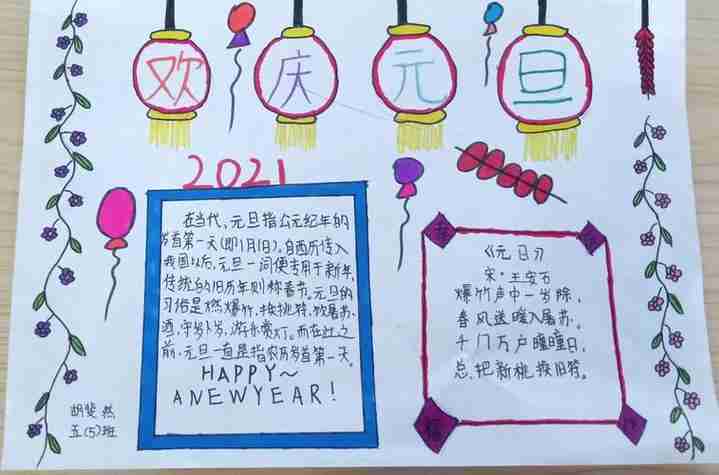 欢庆元旦
2021
在当代,元旦指公元纪年的
岁首第一天(即1月1日)。自西历传入
我国以后,元旦一词便专用于新年,
传统的旧历年则称春节。元旦的
习俗是燃爆竹、换桃符、饮屠苏
酒、守岁卜岁、游乐赏灯。而在此之
前,元旦一直是指农历岁首第一天。
HAPPY~
A NEW YEAR!
《元日》
宋·王安石
爆竹声中一岁除,
春风送暖入屠苏。
千门万户瞳瞳日,
总把新桃换旧符。
胡斐然
五(5)班